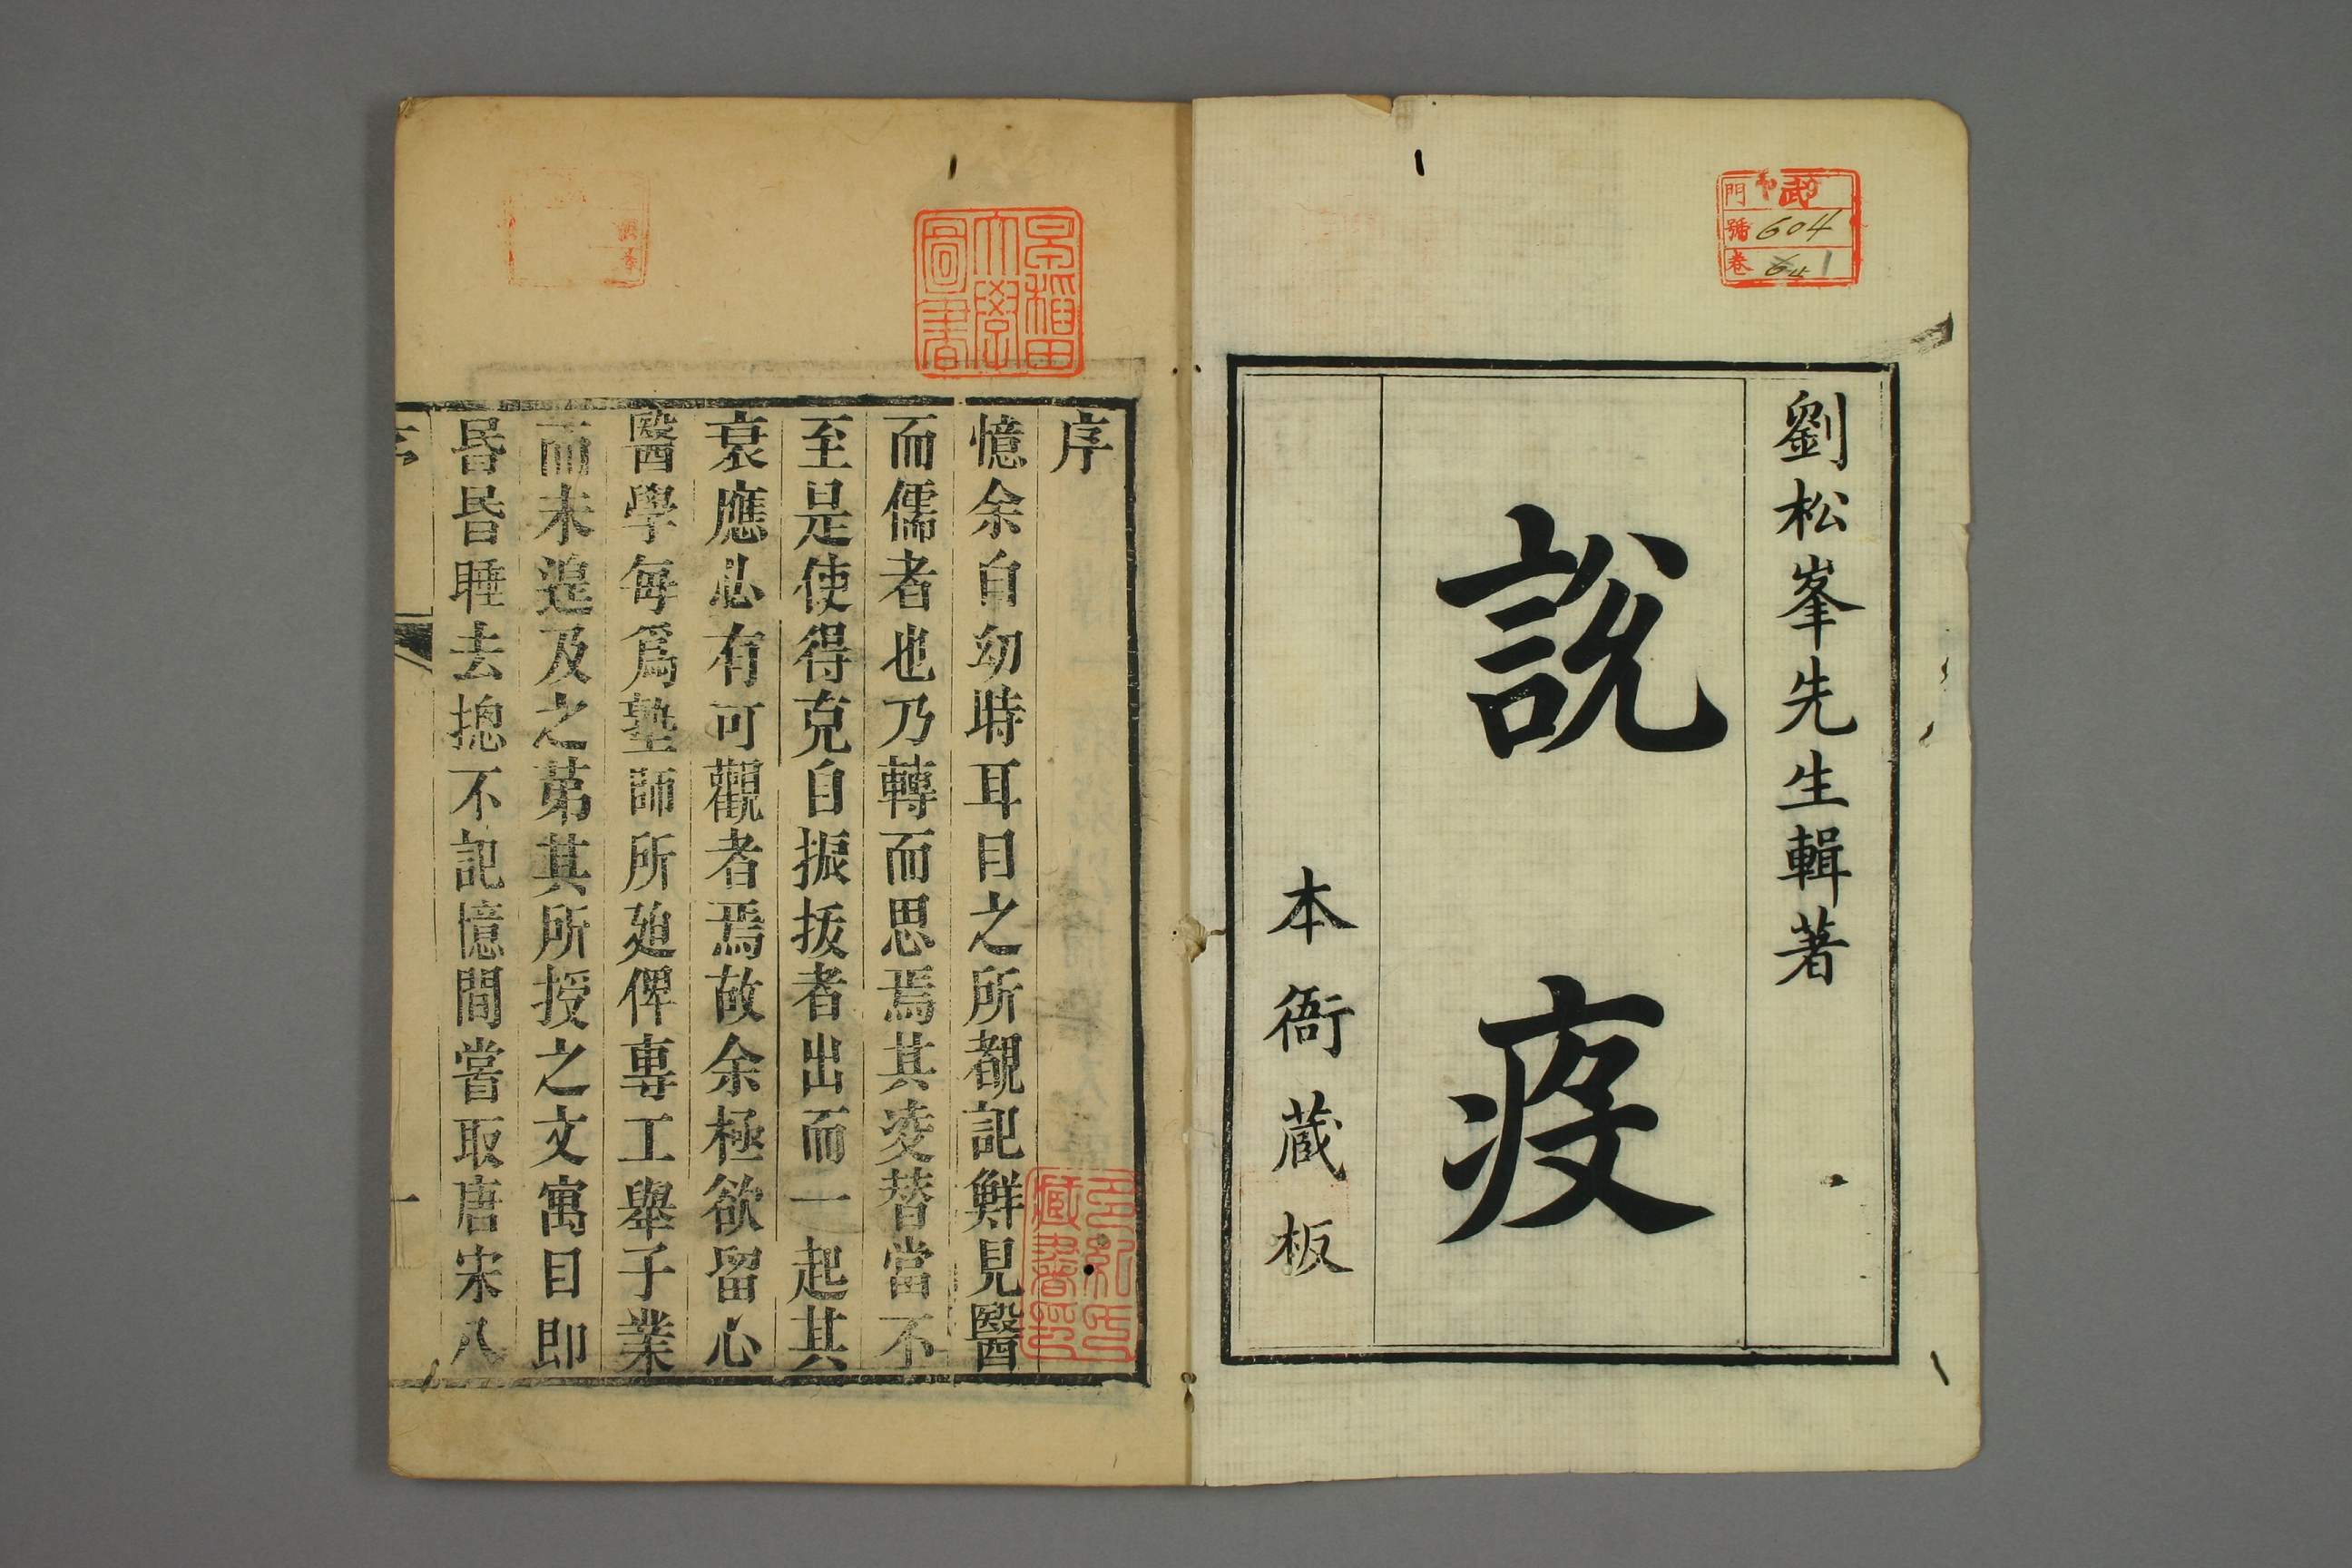 劉松峯先生輯著
說疫
本衙藏板
門
號 604
卷 1
早稻田
大學
圖書
序
憶余自幼時耳目之所覩記鮮見醫
而儒者也乃轉而思焉其凌替當不
至是使得克自振拔者出而一起其
衰應必有可觀者焉故余極欲留心
醫學每爲塾師所廹俾專工舉子業
而未遑及之第其所授之文寓目即
昏昏睡去摠不記憶間嘗取唐宋八
多紀氏
藏書印
一